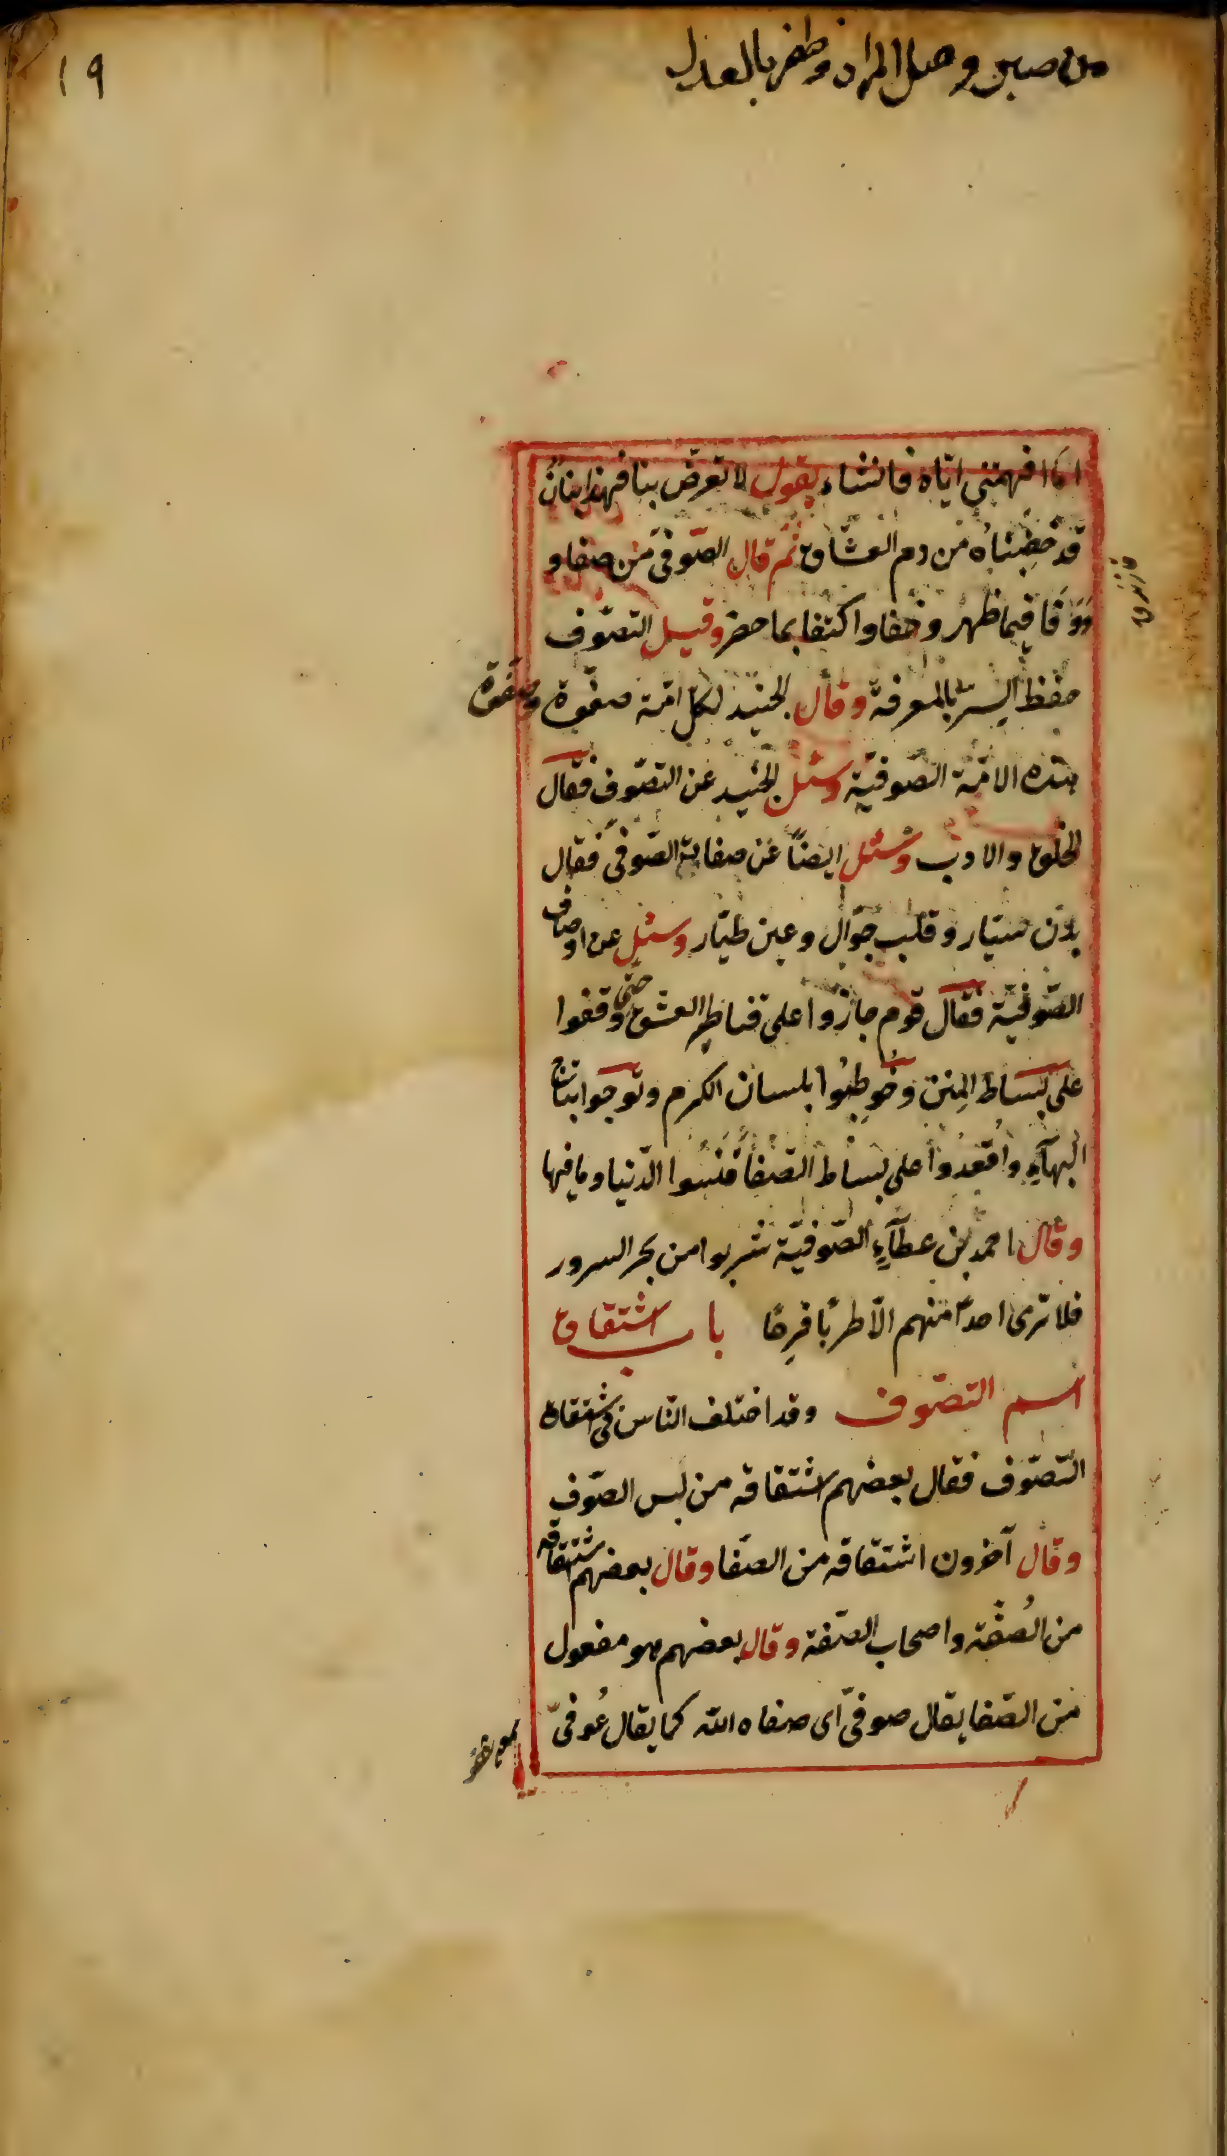 من صبر وصل المراد وظفر بالعدل
١٩
اما افهمتني اياه فانشاء يقول لا تعرّض بنا فهذا بنانٌ
قد خضبناه من دم العشّاق ثم قال الصّوفيّ من صفا و
ووَفا فيما ظهر وخفا واكتفا بما حضر وقيل التصوّف
حفظ السرّ بالمعرفة وقال الجنيد لكل امّة صفوة وصفوة
هذه الامّة الصّوفيّة وسئل الجنيد عن التصوّف فقال
الخلق والادب وسئل ايضاً عن صفا به الصّوفي فقال
بدن سيّار وقلب جوّال وعين طيّار وسئل عن اوصاف
الصّوفيّة فقال قوم جازوا على قناطر العشق حتى وقفوا
على بساط المنن وخوطِبُوا بلسان الكرم وتوجوا بتاج
البهآءِ واُقعدُوا على بساط الصّفا فنسُوا الدّنيا وما فيها
وقال احمد بن عطآءٍ الصّوفيّة شربوا من بحر السرور
فلا ترى احداً منهم الّا طربًا فرِحًا باب اشتقاق
اسم التصوّف وقد اختلف النّاس في اشتقاق
التّصوّف فقال بعضهم اشتقاقه من لبس الصّوف
وقال آخرون اشتقاقه من الصّفا وقال بعضهم اشتقاقه
من الصُفّة واصحاب الصّفة وقال بعضهم هو مفعول
من الصّفا يقال صوفيّ اى صفاه الله كما يقال عُوفيّ